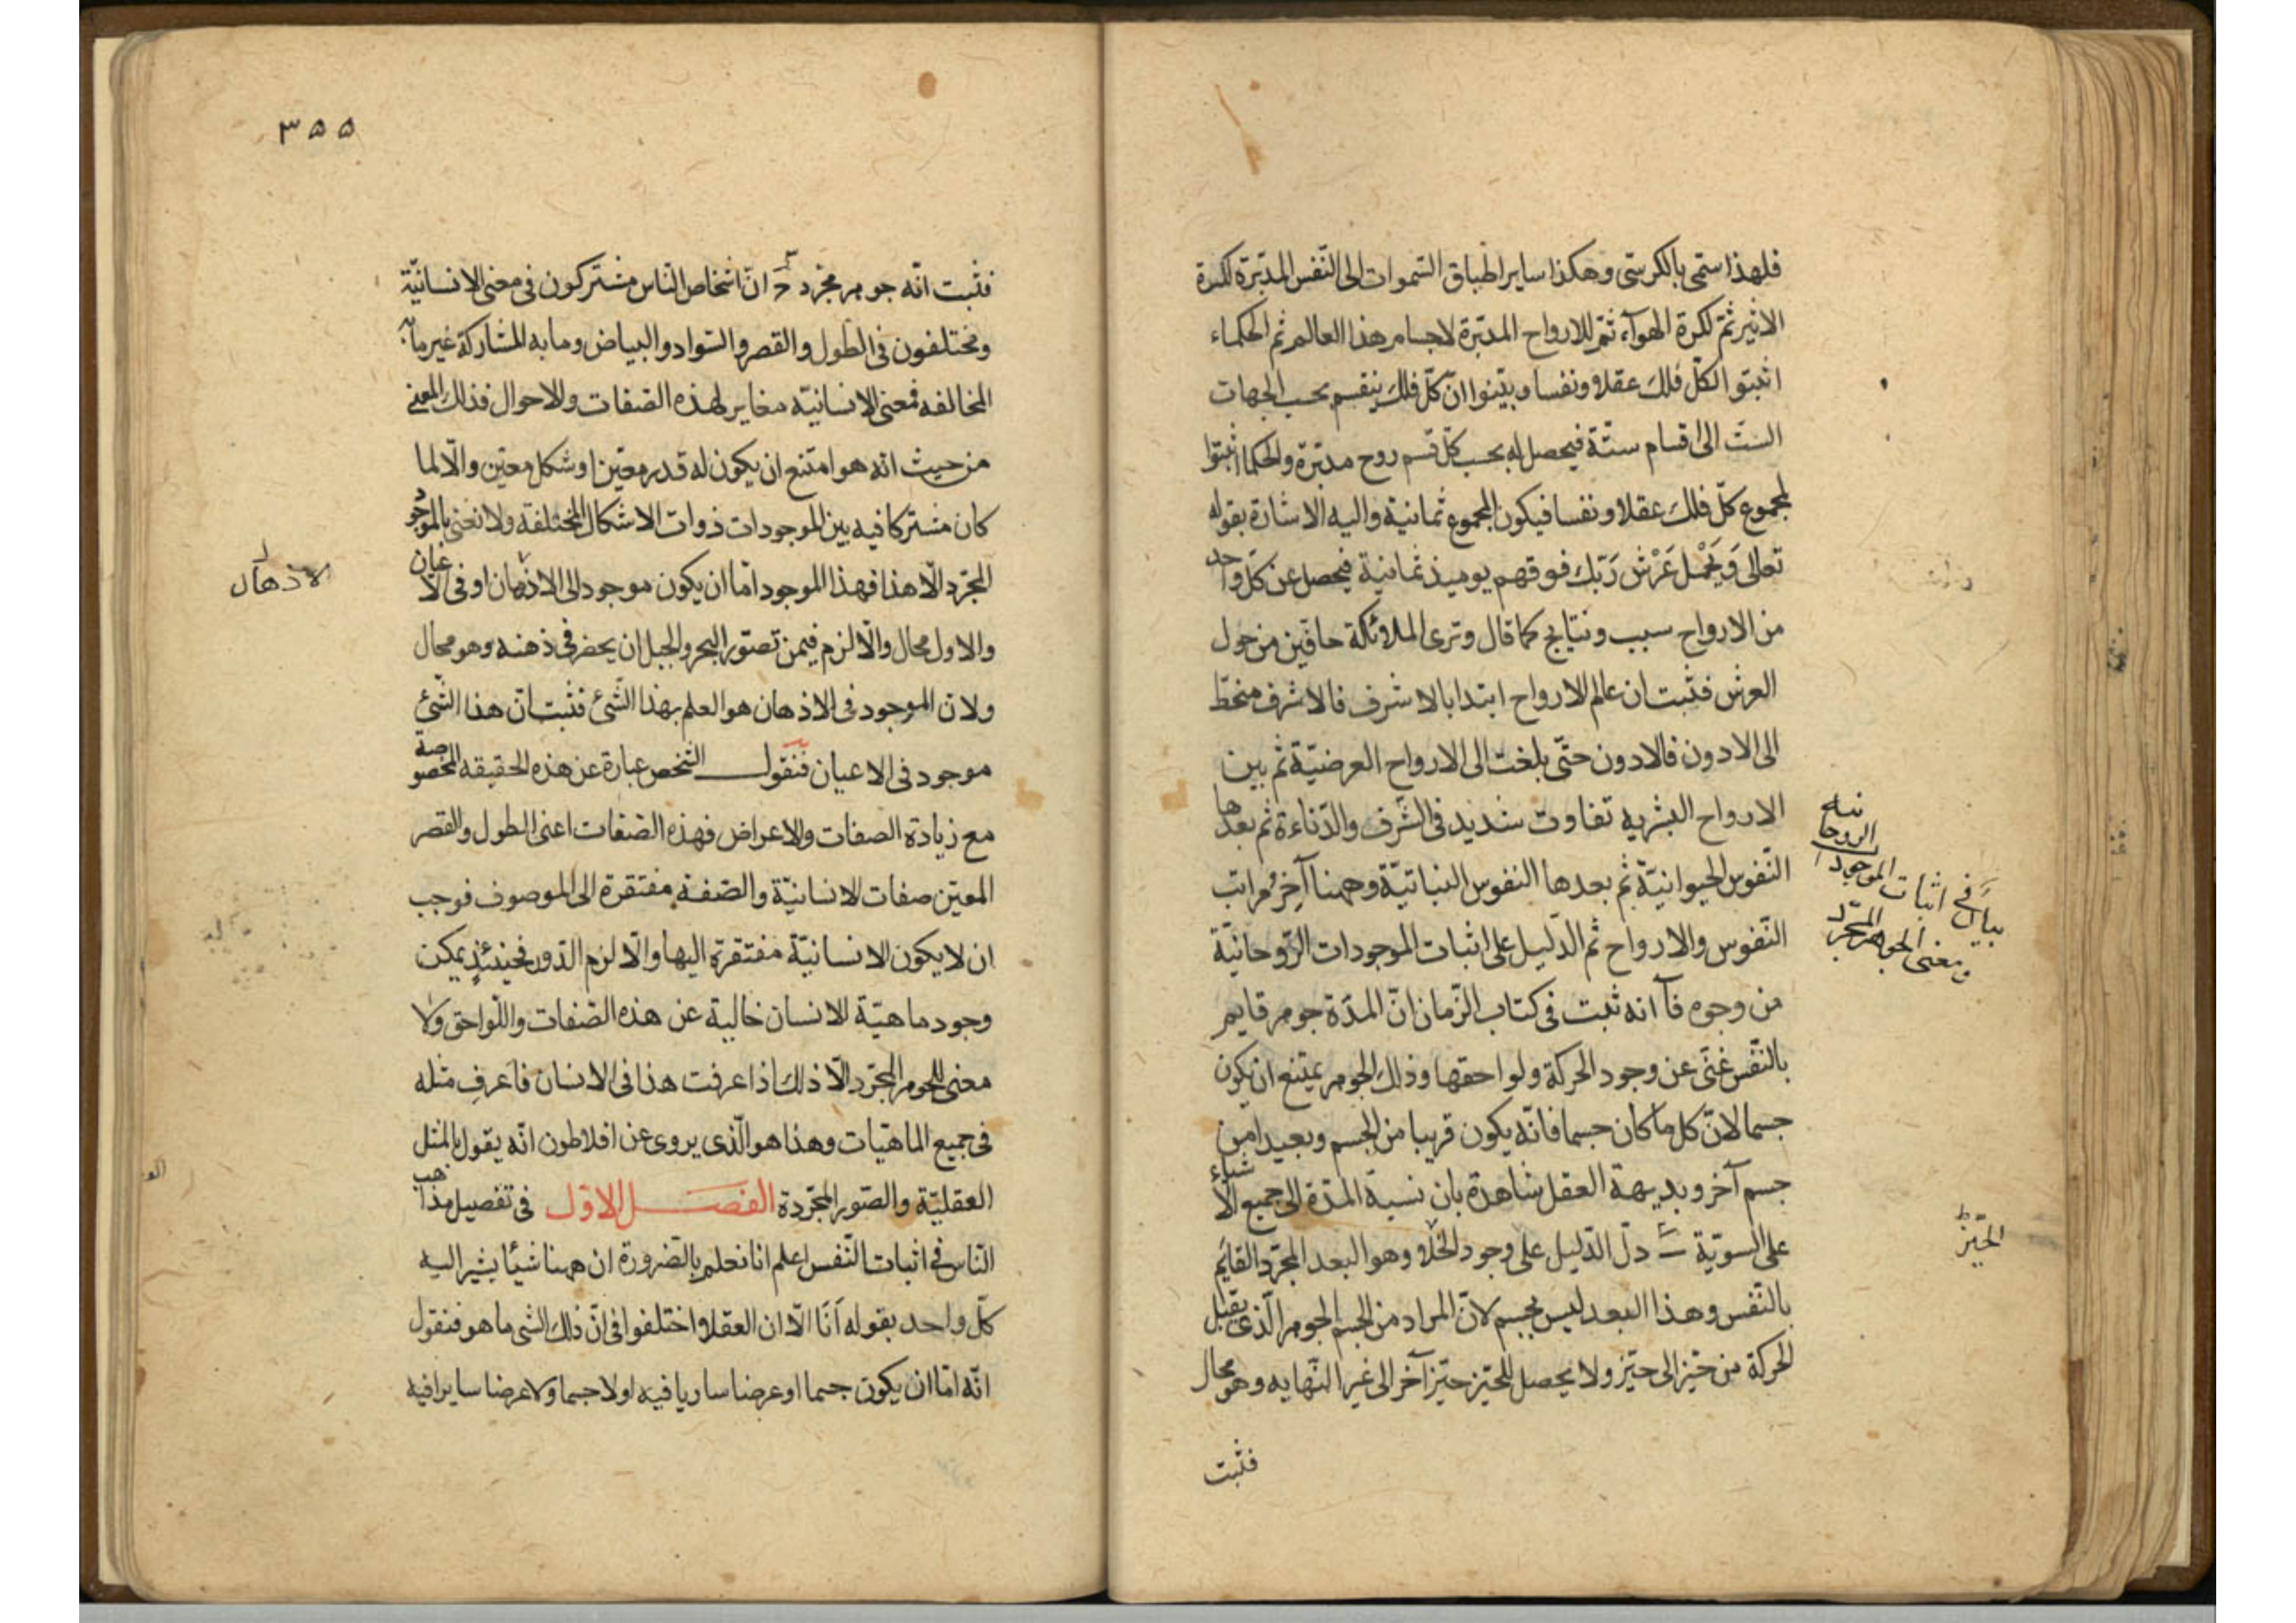 فلهذا سمّى بالكرسّى وهكذا ساير اطباق السّموات الى النّفس المدبّرة لكرة
الاثير ثمّ لكرة الهوآء ثمّ للارواح المدبّرة لاجسام هذا العالم ثم الحكماء
اثبتوا لكلّ فلك عقلا ونفسا وبيّنوا انّ كلّ فلك ينقسم بحسب الجهات
الستّ الى اقسام ستّة فيحصل له بحسب كلّ قسم روح مدبّرة والحكما اثبتوا
لمجموع كلّ فلك عقلا ونفسا فيكون المجموع ثمانية واليه الاشارة بقوله
تعالى وَيَحْمل عَرْش رَبّك فوقهم يوميذ ثمانية فيحصل عن كلّ واحد
من الارواح سبب ونتايج كما قال وترى الملائكة حافّين من حول
العرش فثبت ان عالم الارواح ابتدا بالاشرف فالاشرف منحطّ
الى الادون فالادون حتّى بلغت الى الارواح العرضيّة ثم بين
الارواح البشريه تفاوت شديد فى الشّرف والدّناءة ثم بعدها
النّفوس الحيوانيّة ثم بعدها النفوس النباتيّة وههنا آخر مراتب
النّفوس والارواح ثم الدّليل على اثبات الموجودات الرّوحانيّة
من وجوه فآ انه ثبت فى كتاب الزّمان انّ المدّة جوهر قايم
بالنّفس غنّى عن وجود الحركة ولواحقها وذلك الجوهر يمتنع ان يكون
جسما لانّ كل ما كان جسما فانّه يكون قريبا من الجسم وبعيدا من
جسم آخر وبديهة العقل شاهدة بان نسبة المدّة الى جميع الاشياء
على السويّة ب دلّ الدّليل على وجود الخلا وهو البعد المجرّد القايم
بالنّفس وهذا البعد ليس بجسم لانّ المراد من الجسم الجوهر الّذى يقبل
الحركة من حيّز الى حيّز ولا يحصل للحيّز حيّز آخر الى غير النّهايه وهو محال
فثبت
بيان فى اثبات الموجودا الروحانيه
ومعنى الجوهر المجرّد
الحيّز
٣٥٥
فثبت انّه جوهر مجرّد ج انّ اشخاص النّاس مشتركون فى معنى الانسانيّة
ومختلفون فى الطول والقصر والسّواد والبياض وما به المشاركة غير ما به
المخالفه فمعنى الانسانيّه مغاير لهذه الصّفات والاحوال فذلك المعنى
من حيث انه هو امتنع ان يكون له قدر معيّن او شكل معيّن والّا لما
كان مشتركا فيه بين الموجودات ذوات الاشكال المختلفة ولا نعنى بالموجود
المجرّد الّا هذا فهذا الموجود امّا ان يكون موجود الى الاذهان او فى الاعيان
الاذهان
والاول محال والّا لزم فيمن تصوّر البحر والجبل ان يحضر فى ذهنه وهو محال
ولانّ الموجود فى الاذهان هو العلم بهذا الشّئ فثبت انّ هذا الشّئ
موجود فى الاعيان فنقول الشّخص عبارة عن هذه الحقيقه المخصوصة
مع زيادة الصفات والاعراض فهذه الصّفات اعنى الطول والقصر
المعيّن صفات الانسانيّة والصّفة مفتقرة الى الموصوف فوجب
ان لا يكون الانسانيّة مفتقرة اليها والّا لزم الدّور فحينئذٍ يمكن
وجود ماهيّة الانسان خالية عن هذه الصّفات واللّواحق ولا
معنى للجوهر المجرّد الّا ذلك اذا عرفت هذا فى الانسان فاعرف مثله
فى جميع الماهيّات وهذا هو الّذى يروى عن افلاطون انّه يقول بالمثل
العقليّة والصّور المجرّدة الفصل الاوّل فى تفصيل مذاهب
النّاس فى اثبات النّفس اعلم انا نعلم بالضّرورة ان ههنا شيئا يشير اليه
كلّ واحد بقوله اَنَا الّا ان العقلا اختلفوا فى انّ ذلك الشى ما هو فنقول
انّه امّا ان يكون جسما او عرضا ساريا فيه او لا جسما ولا عرضا سايرا فيه